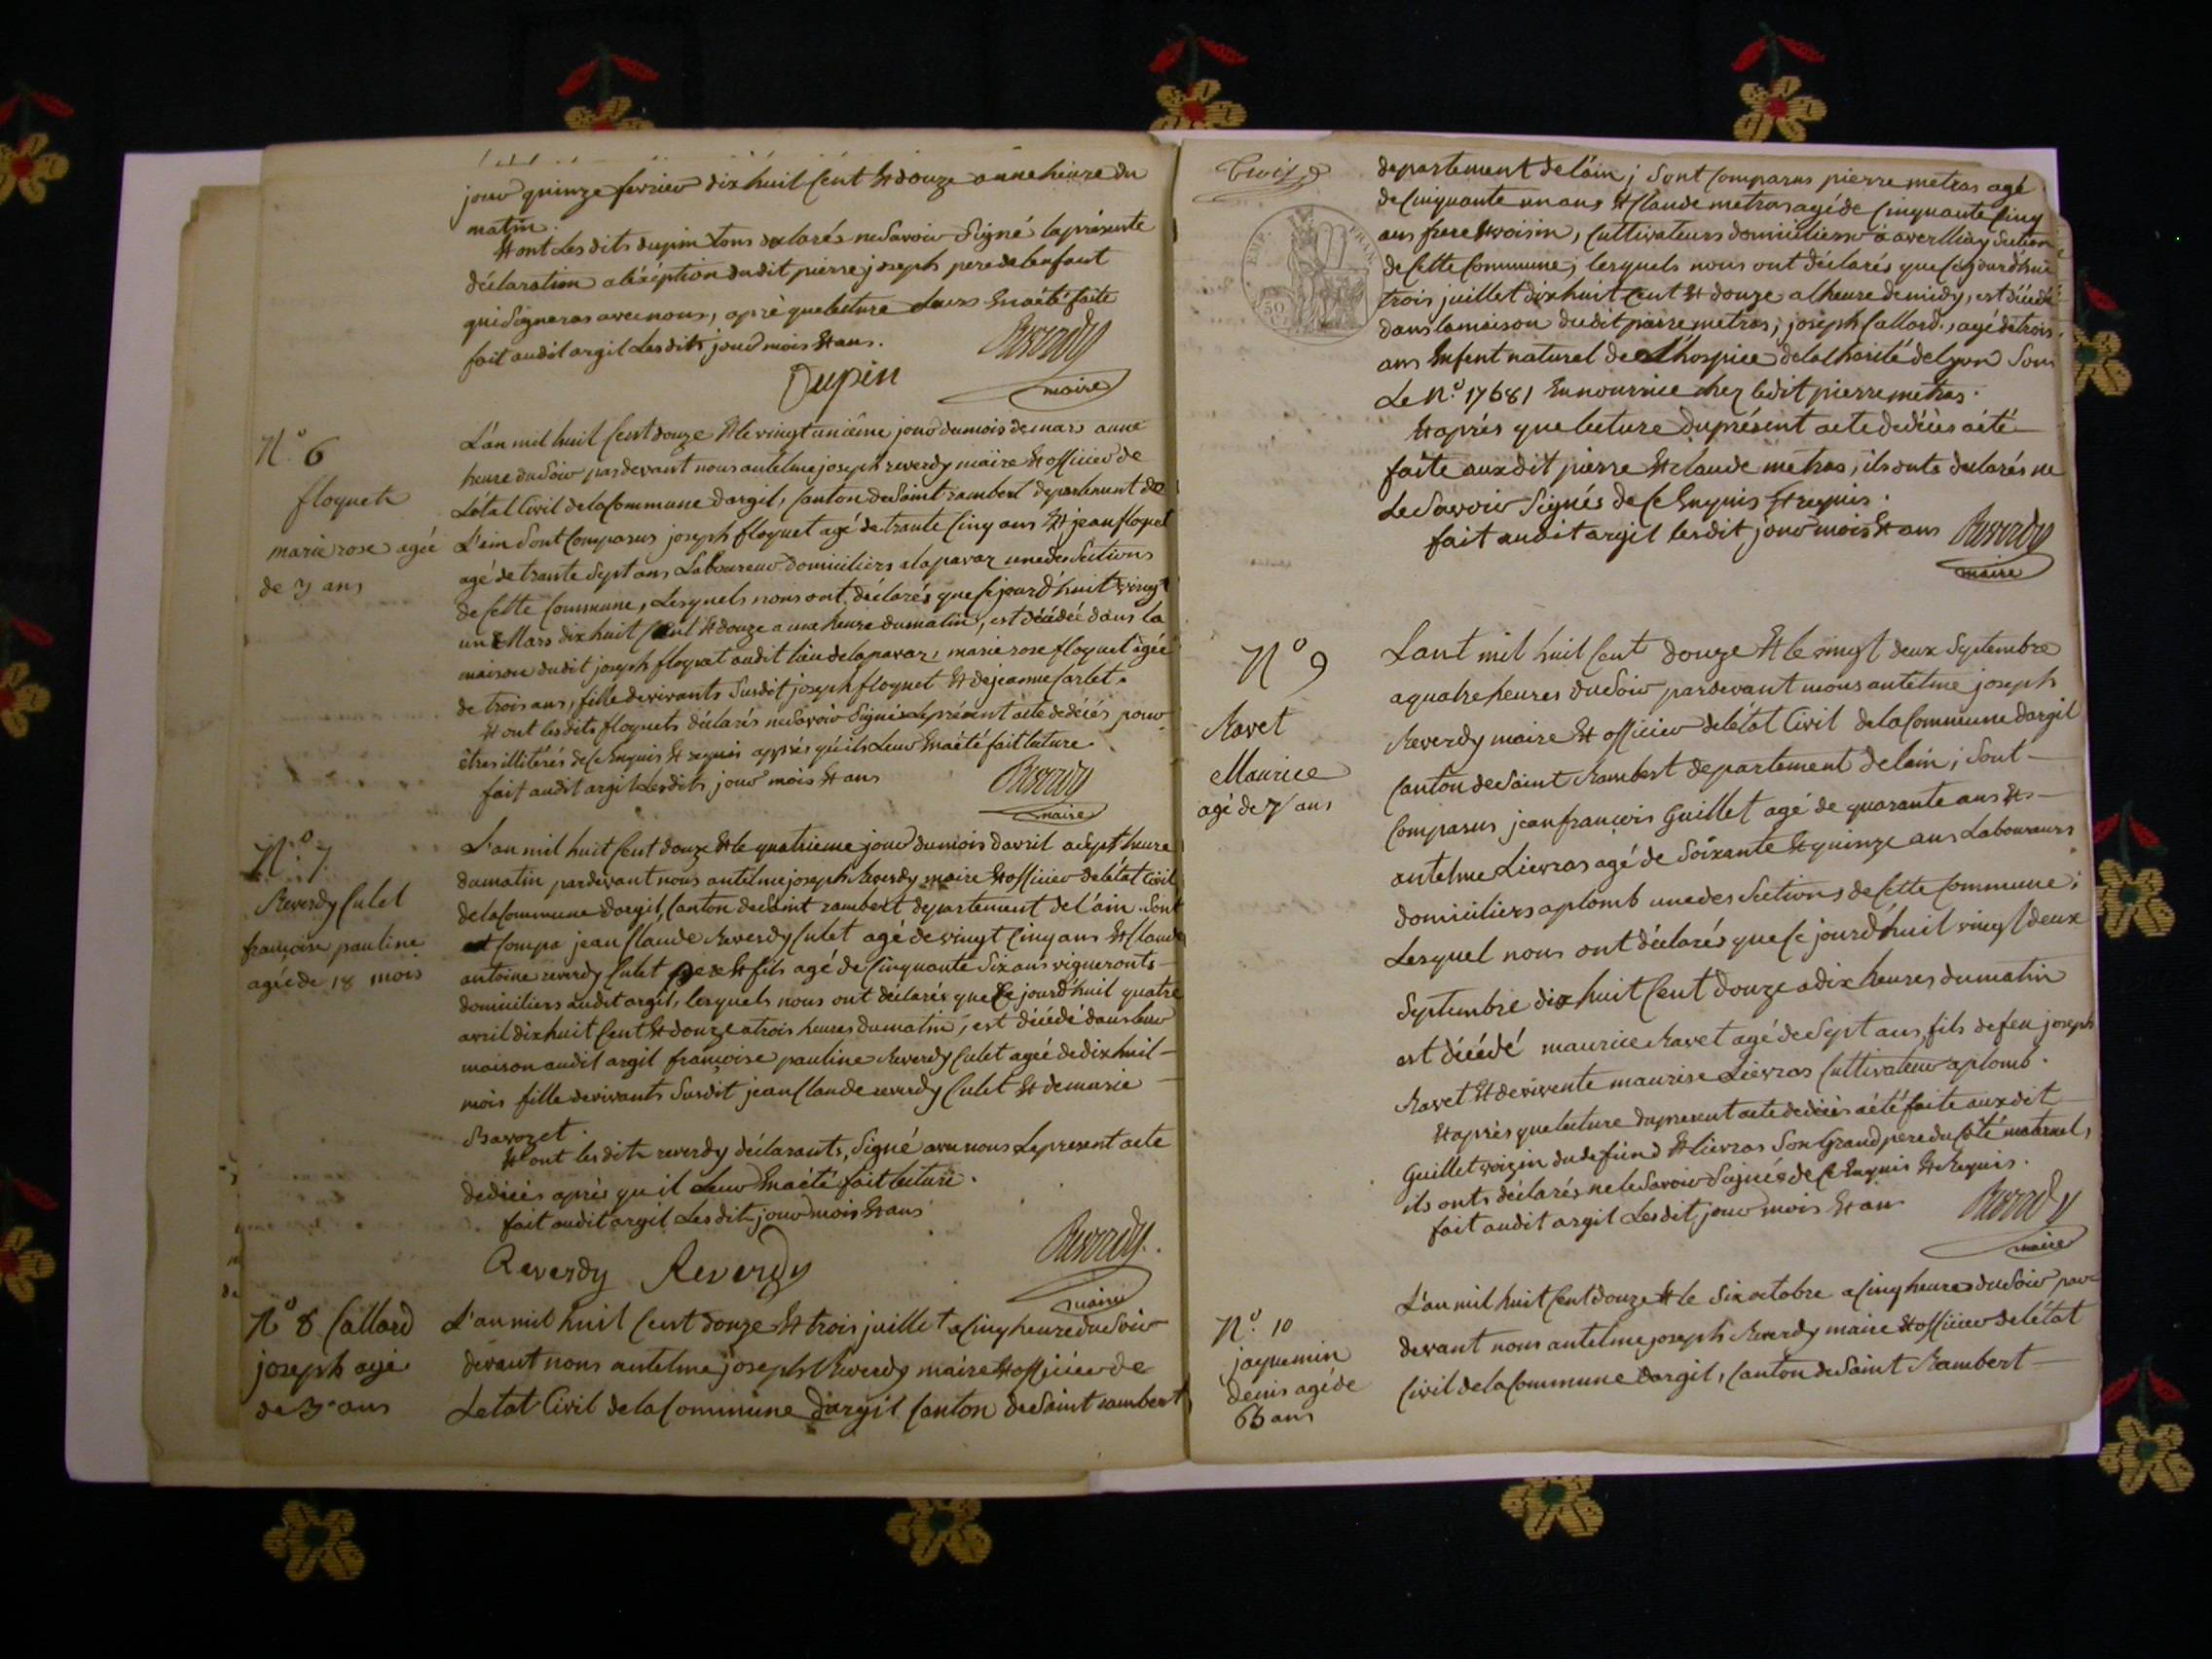 jour quinze fevrier dix huit Cent Et douze a une heure du
matin.
Et ont Les dits dupin tous declarés ne Savoir Signé la présente
déclaration a léxéption dudit pierre joseph pere de lenfant
qui Signeras avec nous, aprè que lecture Leurs En aété faite
fait audit argil Lesdits jour mois Et ans.
Dupin
Reverdy
maire
N.° 6
floquet
marie rose agée
de 3 ans
L'an mil huit Cent douze Et le vingt unième jour du mois de mars a une
heure du Soir pardevant nous antelme joseph reverdy maire Et officier de
L'état Civil de la Commune dargil, Canton de Saint rambert departement de
L'ain Sont Comparus joseph floquet agé de trante Cinq ans Et jean floquet
agé de trante Sept ans Laboureur domiciliers a laparaz une des Sections
de Cette Commune, Lesquels nous ont déclarés que Cejourd'huit vingt
un Mars dix huit Cent Et douze a une heure du matin, est décédée dans la
maison dudit joseph floquet audit lieu de laparaz, marie rose floquet agée
de trois ans, fille de vivants Susdit joseph floquet Et de jeanne Carlet.
Et ont lesdits floquets déclarés ne Savoir Signés Le présent acte de décés pour
êtres illitérés de Ce Enquis Et requis apprés qu'ils Leur En aété fait lecture.
fait audit argil Lesdits jour mois Et ans
Reverdy
maire
N.° 7.
Reverdy Culet
françoise pauline
agée de 18 mois
L'an mil huit Cent douze Et le quatrieme jour du mois d'avril a Sept heure
du matin pardevant nous antelme joseph Reverdy maire Et officier de létat Civil
de la Commune d'argil, Canton de Saint rambert departement de l'ain. Sont
Compa jean Claude Reverdy Culet agé de vingt Cinq ans Et Claude
antoine reverdy Culet pere Et fils agé de Cinquante Six ans vigneronts
domiciliers audit argil, lesquels nous ont déclarés que Ce jourd'huit quatre
avril dix huit Cent Et douze a trois heures du matin, est décédé dans leur
maison audit argil françoise pauline Reverdy Culet agée de dix huit
mois fille de vivants Susdit jean Claude reverdy Culet Et de marie
Bavozet.
Et ont lesdits reverdy déclarants, Signé avec nous Le present acte
de décés aprés qu'il Leur En aété fait lecture.
fait audit argil Lesdits jour mois Et ans
Reverdy Reverdy
Reverdy.
maire
N° 8 Callard
joseph agé
de 3 ans
L'an mil huit Cent douze Et trois juillet a Cinq heure du Soir
devant nous antelme joseph Reverdy maire Et officier de
Letat Civil de la Commune d'argil Canton de Saint rambert
Trois
EMP. FRAN.
departement de l'ain; Sont Comparus pierre metras agé
de Cinquante un ans Et Claude metras agé de Cinquante Cinq
ans frere Et voisin, Cultivateurs domiciliers a averlliay Section
de Cette Commune; lesquels nous ont déclarés que Cejourd'hui
trois juillet dix huit Cent Et douze a lheure de midy, est décédé
dans la maison dudit pierre metras; joseph Callard., agé de trois
ans Enfent naturel de L'hospice de la Charité de Lyon Sous
Le N.° 17681 En nourrice chez ledit pierre metras.
Et aprés que lecture du présent acte de décés aété
faite auxdit pierre Et claude metras, ils onts declarés ne
Le Savoir Signés de Ce Enquis Et requis.
fait audit argil lesdit jour mois Et ans
Reverdy
maire
N° 9
Ravet
Maurice
agé de 7 ans
Lant mil huit Cent douze Et le vingt deux Septembre
a quatre heures du Soir pardevant nous antelme joseph
Reverdy maire Et officier de létat Civil de la Commune dargil
Canton de Saint Rambert departement de lain; Sont
Comparus jean françois Guillet agé de quarante ans Et
antelme Lievras agé de Soixante Et quinze ans Laboureurs
domiciliers a plomb une des Sections de Cette Commune;
Lesquel nous ont déclarés que Ce jourd'huit vingt deux
Septembre dix huit Cent douze a dix heures du matin
est décédé maurice Ravet agé de Sept ans, fils de feu joseph
Ravet Et de vivente maurise Lievras Cultivateur a plomb.
Et aprés que lecture du present acte de décés aété faite auxdit
Guillet voizin du defund Et lievras Son Grand pere du Côté maternel,
ils onts déclarés ne le Savoir Signés de Ce Enquis Et Requis.
fait audit argil Lesdit jour mois Et an
Reverdy
maire
N.° 10
jaquemin
denis agé de
65 ans
L'an mil huit Cent douze Et le Six octobre a Cinq heures du Soir par
devant nous antelme joseph Reverdy maire Et officier de létat
Civil de la Commune dargil, Canton de Saint Rambert